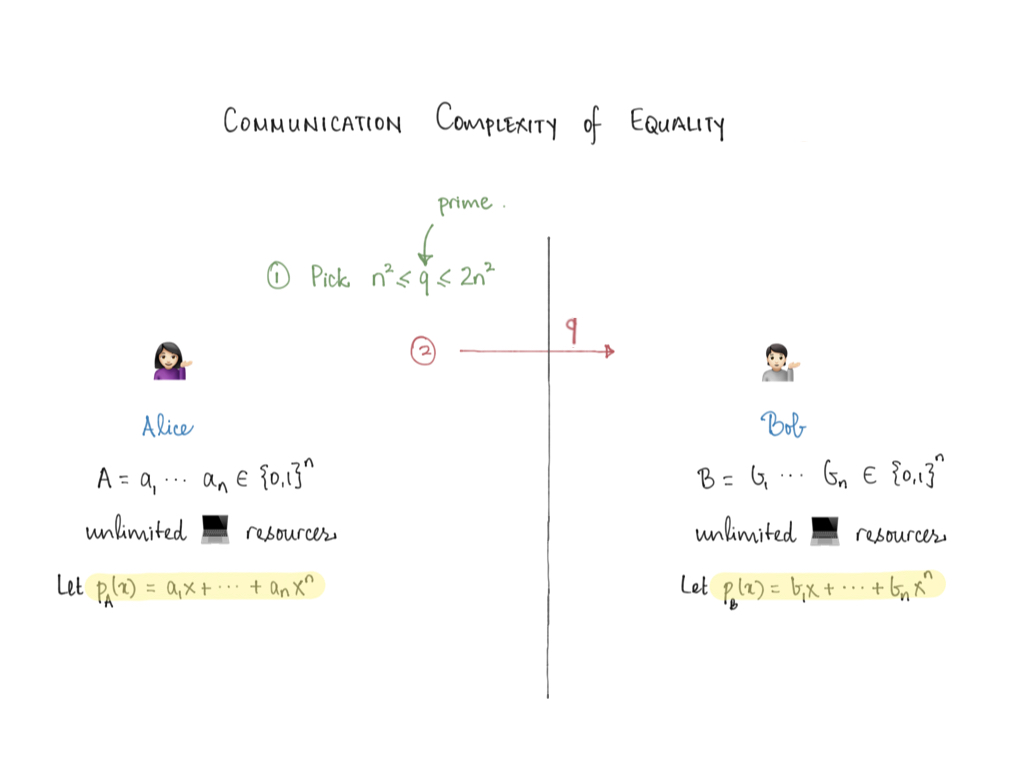 COMMUNICATION COMPLEXITY of EQUALITY
prime.
① Pick n² ≤ q ≤ 2n²
② q
Alice
A = a₁ ⋯ aₙ ∈ {0,1}ⁿ
unlimited 💻 resources
Let p_A(x) = a₁x + ⋯ + aₙxⁿ
Bob
B = b₁ ⋯ bₙ ∈ {0,1}ⁿ
unlimited 💻 resources
Let p_B(x) = b₁x + ⋯ + bₙxⁿ